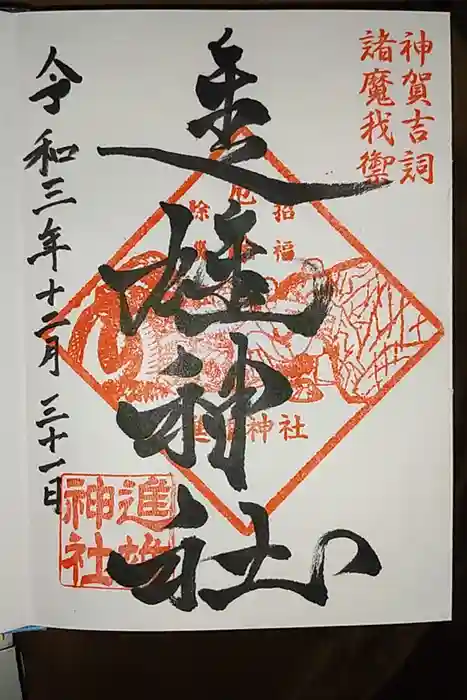 神賀吉詞
諸魔我禦
進雄神社
招福
進雄神社
令和三年十二月三十一日
進雄
神社